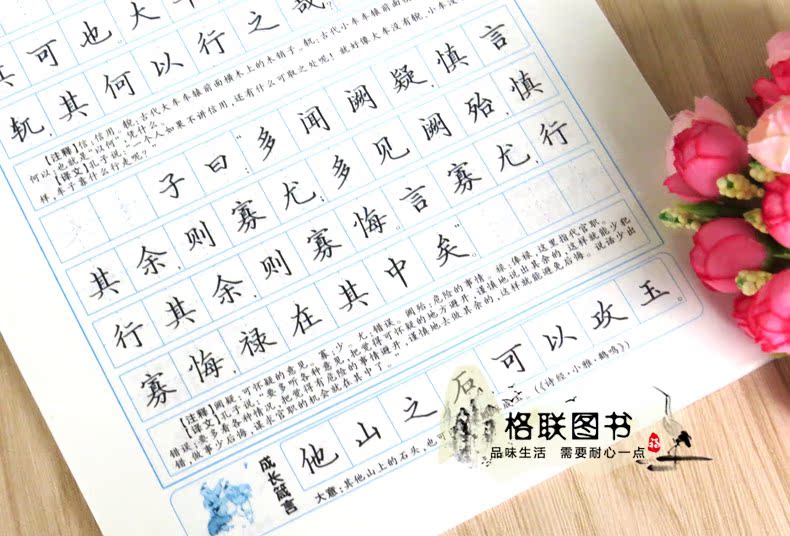 可也大车
軏,其何以行之哉
【注释】信:信用。輗:古代大车车辕前面横木上的木销子。軏:古代小车车辕前面横
何以:也就是"以何",凭什么。
【译文】孔子说:"一个人如果不讲信用,还有什么可取之处呢!就好像大车没有輗、小车没
样,车子靠什么行走呢?"
子曰:"多闻阙疑,慎言
其余,则寡尤;多见阙殆,慎
行其余,则寡悔。言寡尤,行
寡悔,禄在其中矣。"
【注释】阙疑:可怀疑的意见。寡:少。尤:错误。阙殆:危险的事情。禄:俸禄,这里指代官职。
【译文】孔子说:"要多听各种意见,把觉得可怀疑的地方避开,谨慎地说出其余的,这样就能少犯
错误;要多看各种情况,把觉得有危险的事情避开,谨慎地去做其余的,这样就能避免后悔。说话少出
错,做事少后悔,谋求官职的机会就在其中了。"
成长箴言
他山之石,可以攻玉。
大意:其他山上的石头,也可
(《诗经·小雅·鹤鸣》)
格联图书
品味生活 需要耐心一点